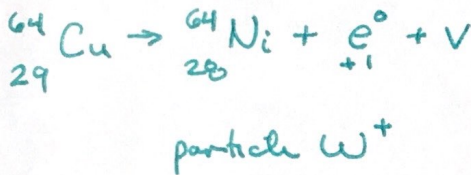 ⁶⁴₂₉Cu → ⁶⁴₂₈Ni + ₊₁e⁰ + ν
particle W⁺